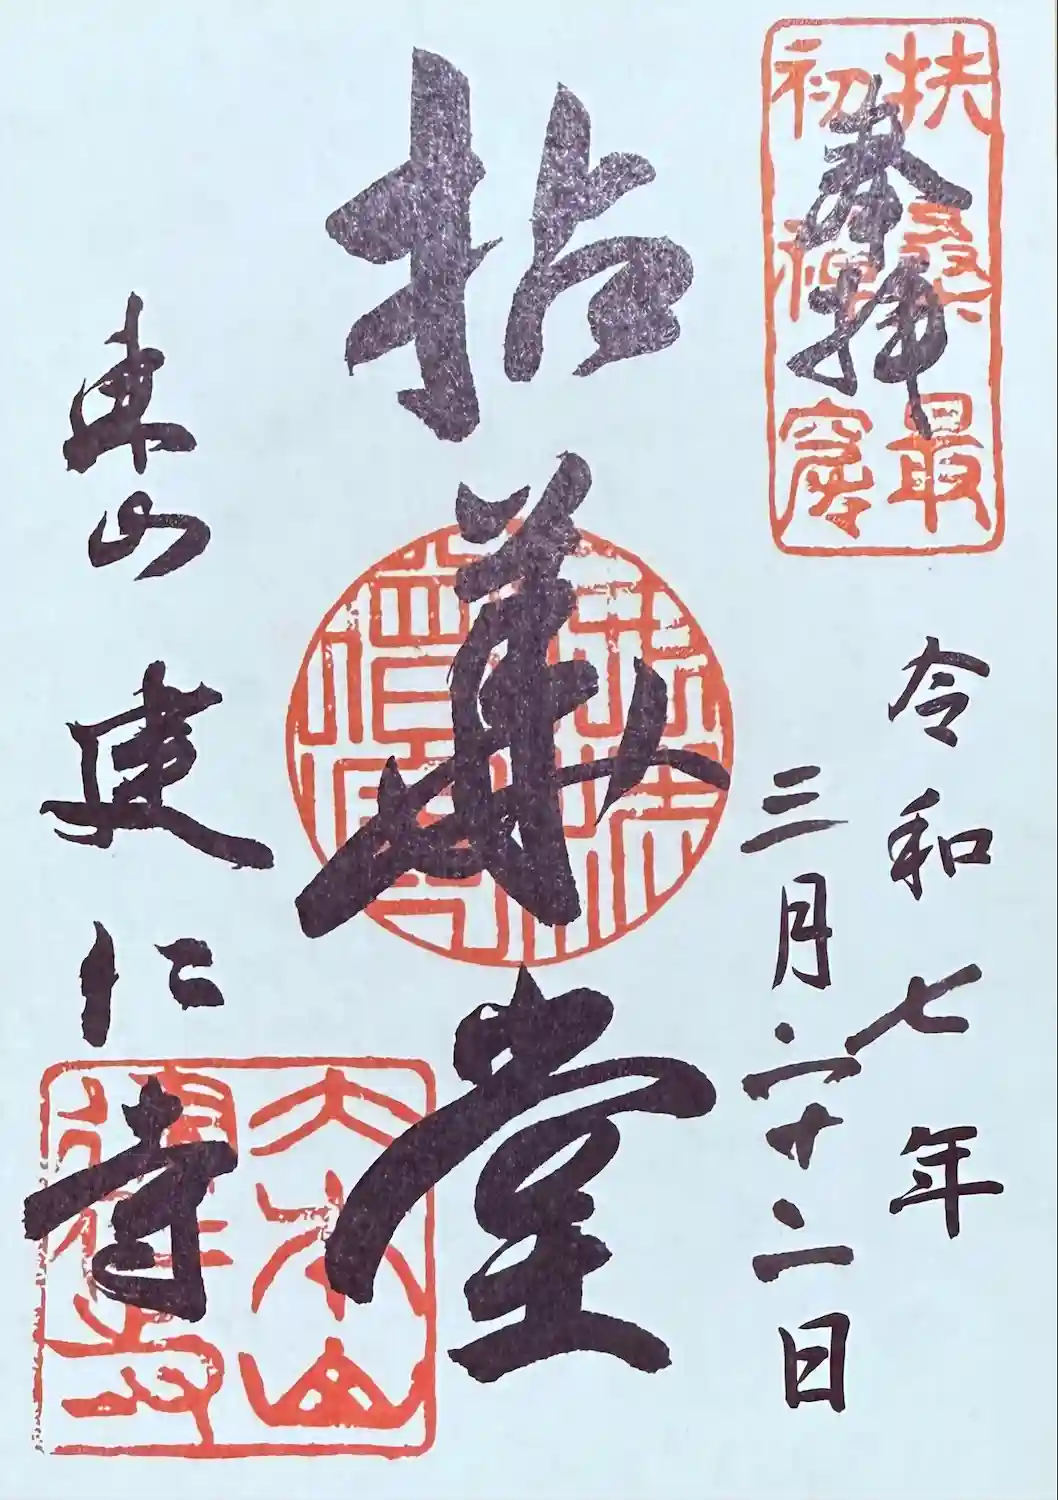 扶桑最
初禅窟
奉拝
令和七年
三月二十二日
拈華堂
佛法
僧寶
東山 建仁寺
大本山
建仁寺